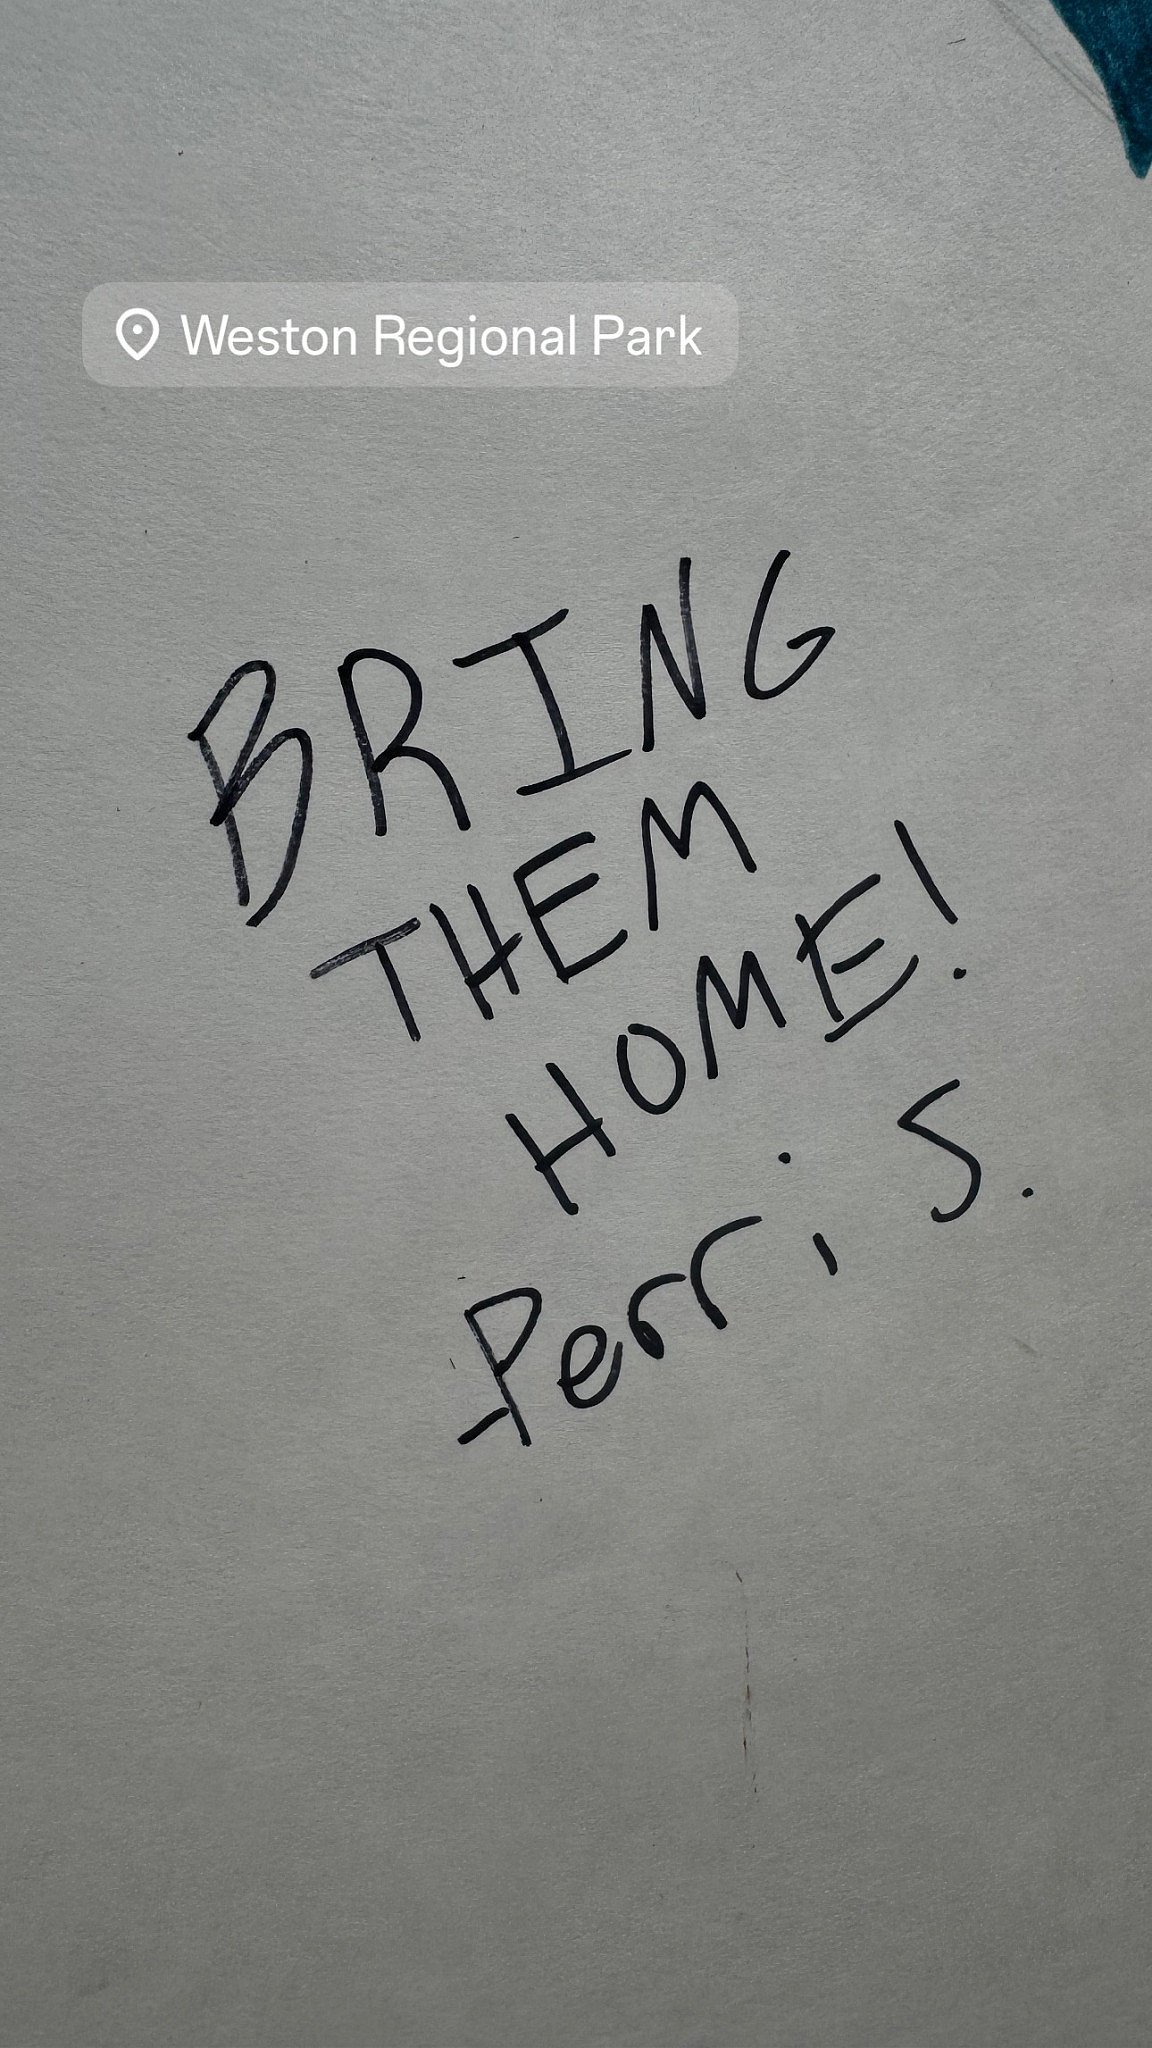 Weston Regional Park
BRING
THEM
HOME!
-Perri S.